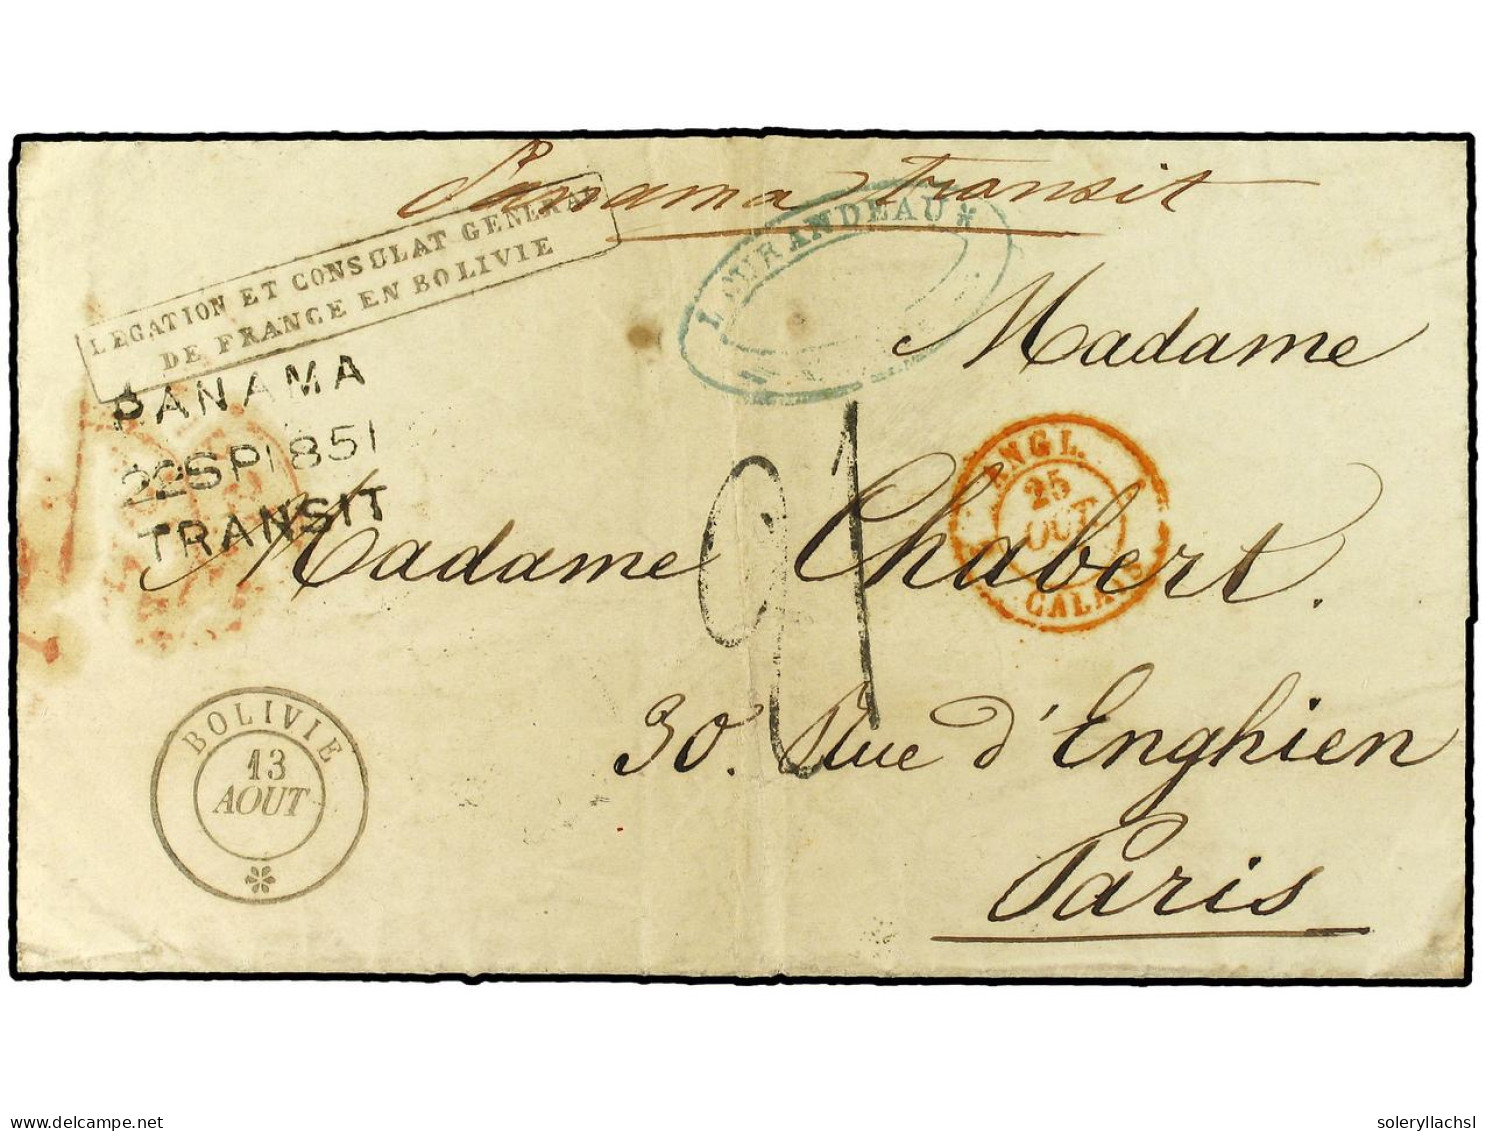 Panama transit
LEGATION ET CONSULAT GENERAL
DE FRANCE EN BOLIVIE
LOURANDEAU *
PANAMA
22SP1851
TRANSIT
Madame
Madame Chabert.
21
ANGL.
25
OUT
CALAIS
30. Rue d'Enghien
Paris
BOLIVIE
13
AOUT
delcampe.net
soleryllachsl